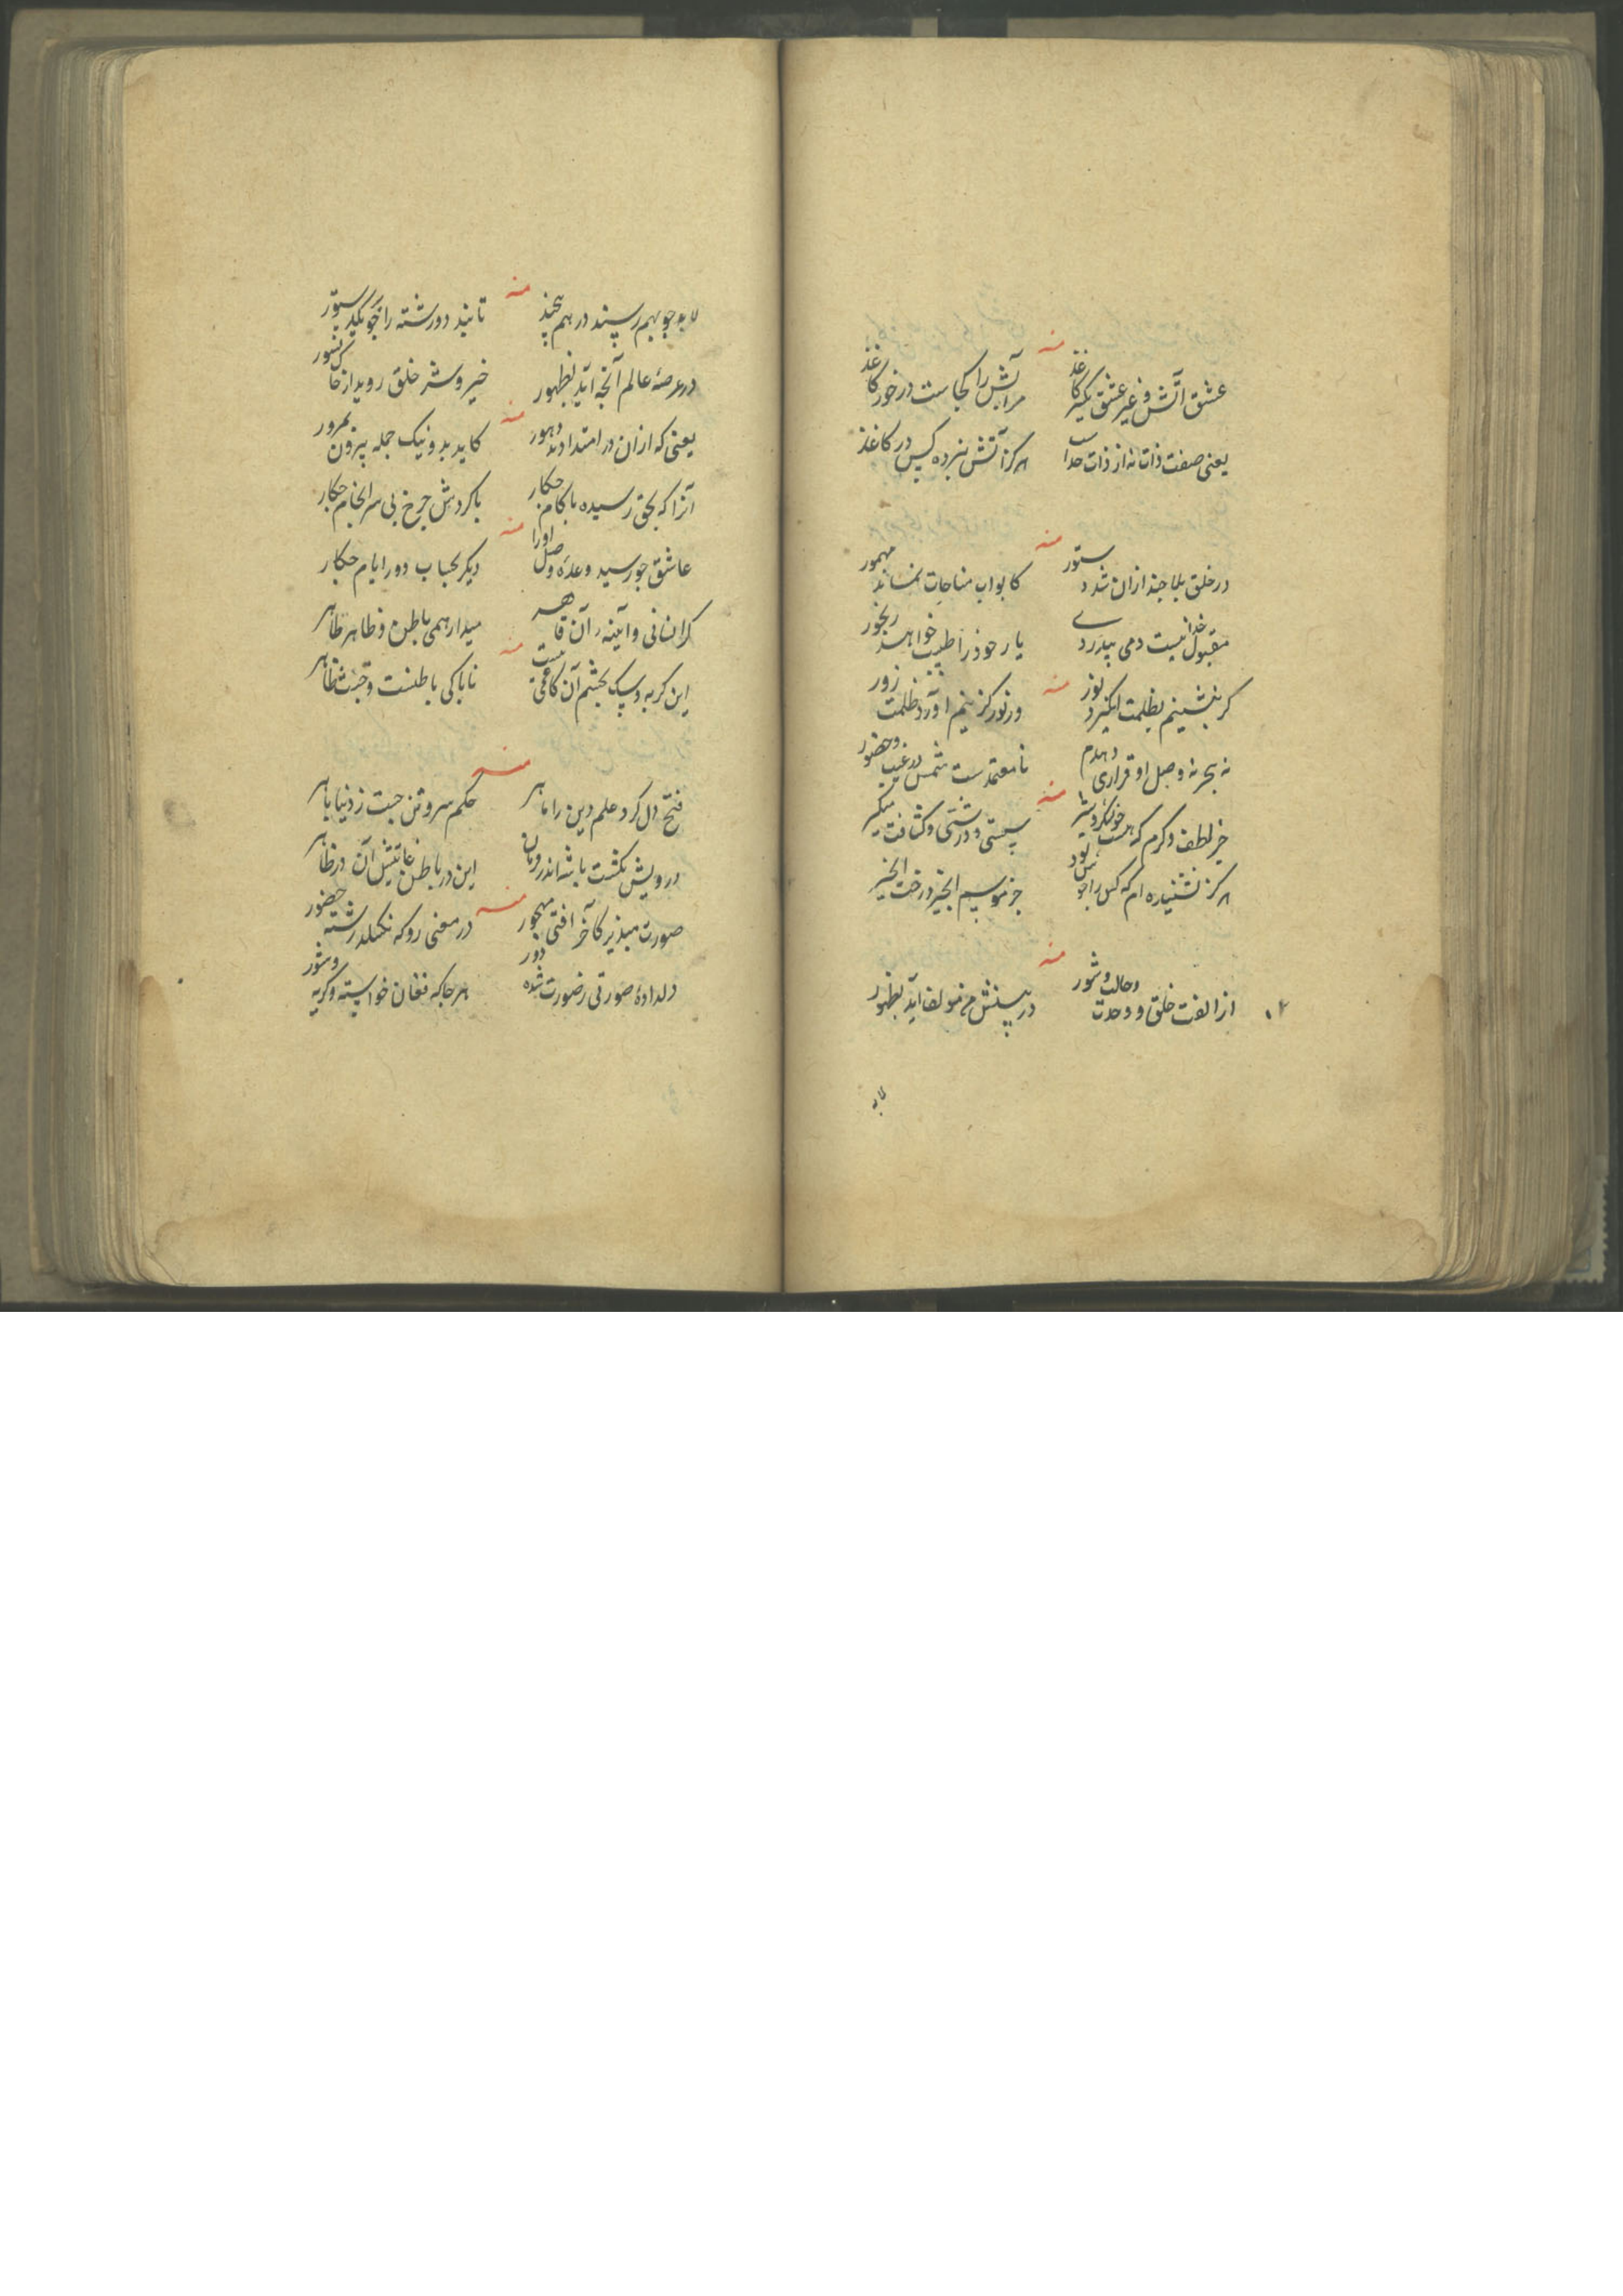 منه
عشق آتش و غیر عشق یکسر کاغذ
مر آتش را کجاست در خور کاغذ
یعنی صفت ذات نه از ذات جداست
هرکز آتش نبرده کس در کاغذ
منه
در خلق بلا چند ازان شد دستور
کابواب مناجات نماند مهمور
مقبول خدا نیست دمی بیدردی
یار خود را طبیب خواهد رنجور
منه
کر بنشینم بظلمت انکیزد نور
ور نور کزینم آورد ظلمت زور
نه هجر نه وصل او قراری دهدم
نامعتمدست شمس در غیب و حضور
منه
جز لطف و کرم که هست خو
سستی و درشتی و کثافت میکیر
هرکز نشنیده ام که کس را بود
جز موسم انجیر درخت انجیر
منه
از الفت خلق و وحدت و حالت و شور
در بینش من مو لقا آید بظهور
لابد
لابد چو بهم رسند در هم پیچند
تابند دو رشته را چو یکدیکر
منه
در عرصهٔ عالم آنچه آید بظهور
خیر و شر خلق روید از خاک
یعنی که ازان در امتداد دهور
کاید بد و نیک جمله بیرون بمرور
منه
آنرا که بحق رسیده با کام چکار
با کردش چرخ بی سرانجام چکار
عاشق چو رسید وعدهٔ وصل او را
دیکر بحساب دور ایام چکار
منه
کر انسانی و آینه آن قاهر
میدار همی باطن و ظاهر طاهر
این کربه و سک بچشم آن کافی نیست
ناپاکی باطنست و خبث ظاهر
منه
فتح دل کرد علم دین را ماهر
حکم سر و تن جست ز دنیا باهر
درویش نکشت پادشه اندر
این در باطن آن در ظاهر
منه
صورت مپذیر کآخر افتی مهجور
در معنی رو که نکسلد رشته حضور
دلدادهٔ صورتی ز صورت شده دور
هر جا که فغان خواسته و کریه و شور